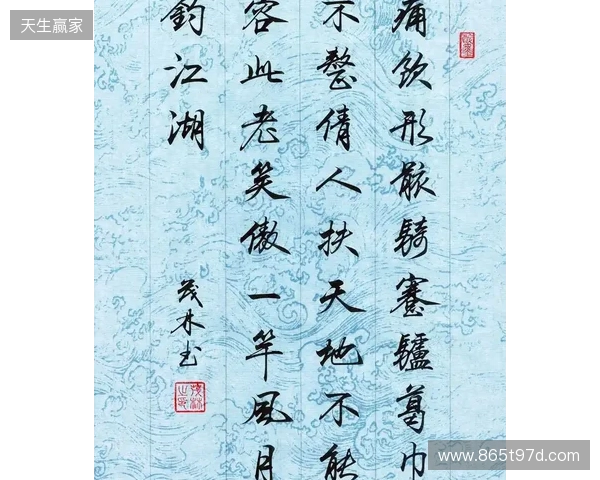 天生赢家
痛饮形骸騎蹇驢葛巾
不整倩人扶天地不能
容此老笑傲一竿風月
釣江湖
茂林书
www.865197d.com